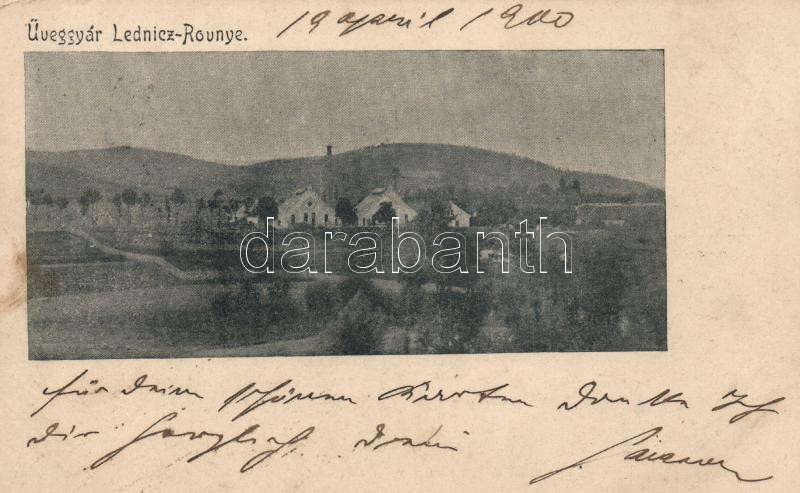 Üveggyár Lednicz-Rovnye.
19 april 1900
darabanth
für deine schönen Karten danke ich
dir herzlich dein